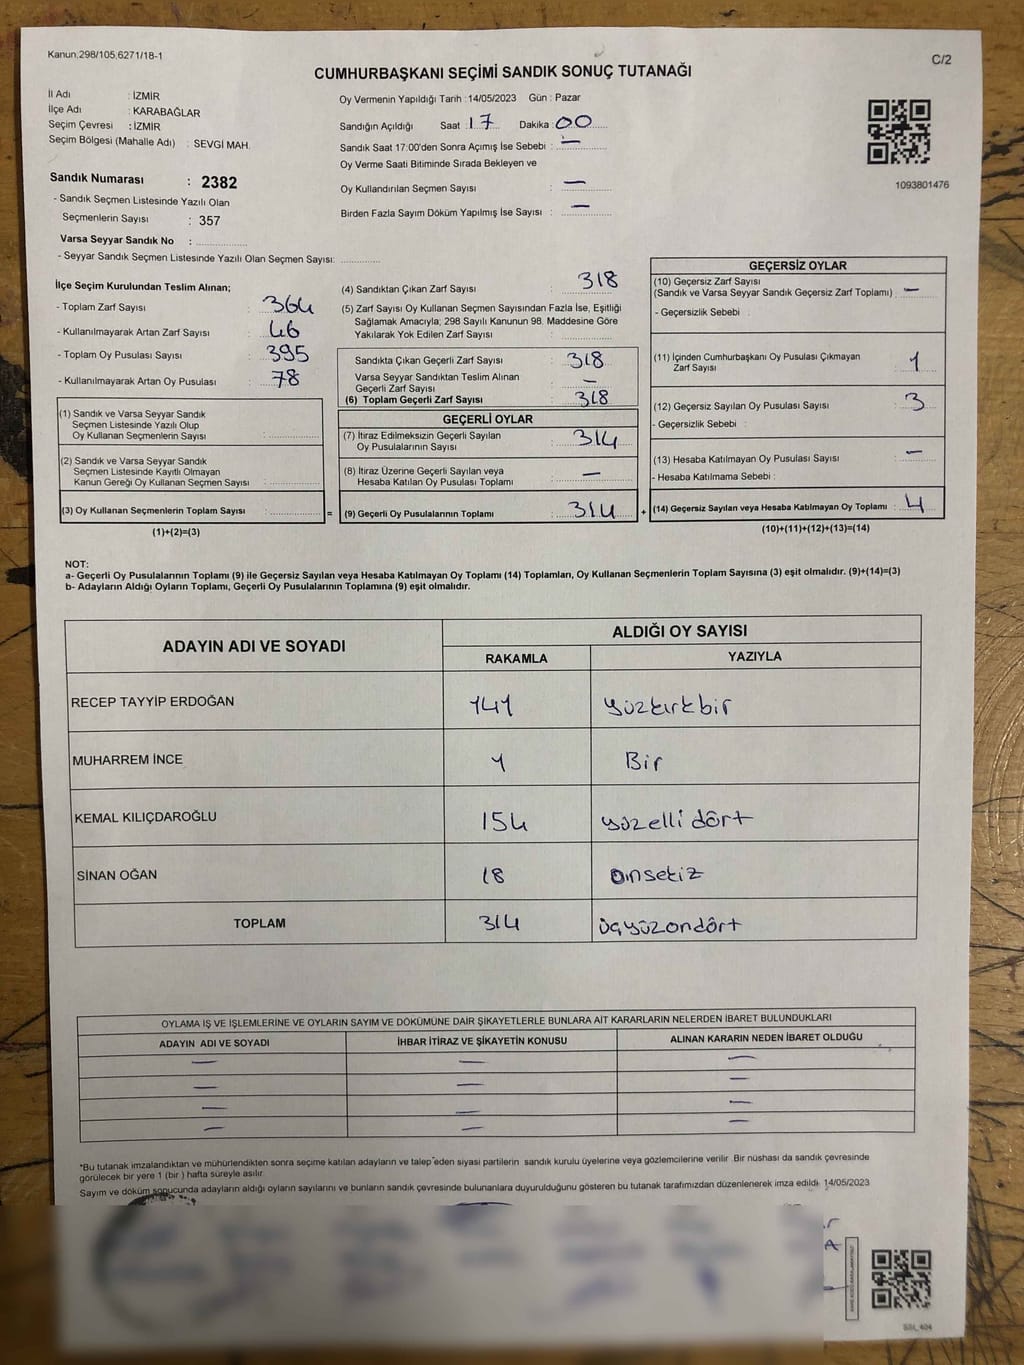 Kanun:298/105,6271/18-1
C/2
CUMHURBAŞKANI SEÇİMİ SANDIK SONUÇ TUTANAĞI
İl Adı : İZMİR
İlçe Adı : KARABAĞLAR
Seçim Çevresi : İZMİR
Seçim Bölgesi (Mahalle Adı) : SEVGİ MAH.
Sandık Numarası : 2382
- Sandık Seçmen Listesinde Yazılı Olan
Seçmenlerin Sayısı : 357
Varsa Seyyar Sandık No :
- Seyyar Sandık Seçmen Listesinde Yazılı Olan Seçmen Sayısı:
Oy Vermenin Yapıldığı Tarih :14/05/2023 Gün : Pazar
Sandığın Açıldığı Saat 17 Dakika 00
Sandık Saat 17:00'den Sonra Açımış İse Sebebi : —
Oy Verme Saati Bitiminde Sırada Bekleyen ve
Oy Kullandırılan Seçmen Sayısı : —
Birden Fazla Sayım Döküm Yapılmış İse Sayısı : —
1093801476
İlçe Seçim Kurulundan Teslim Alınan;
- Toplam Zarf Sayısı : 364
- Kullanılmayarak Artan Zarf Sayısı : 46
- Toplam Oy Pusulası Sayısı : 395
- Kullanılmayarak Artan Oy Pusulası : 78
(1) Sandık ve Varsa Seyyar Sandık
Seçmen Listesinde Yazılı Olup
Oy Kullanan Seçmenlerin Sayısı :
(2) Sandık ve Varsa Seyyar Sandık
Seçmen Listesinde Kayıtlı Olmayan
Kanun Gereği Oy Kullanan Seçmen Sayısı :
(3) Oy Kullanan Seçmenlerin Toplam Sayısı : =
(1)+(2)=(3)
(4) Sandıktan Çıkan Zarf Sayısı : 318
(5) Zarf Sayısı Oy Kullanan Seçmen Sayısından Fazla İse, Eşitliği
Sağlamak Amacıyla; 298 Sayılı Kanunun 98. Maddesine Göre
Yakılarak Yok Edilen Zarf Sayısı :
Sandıkta Çıkan Geçerli Zarf Sayısı : 318
Varsa Seyyar Sandıktan Teslim Alınan
Geçerli Zarf Sayısı : —
(6) Toplam Geçerli Zarf Sayısı : 318
GEÇERLİ OYLAR
(7) İtiraz Edilmeksizin Geçerli Sayılan
Oy Pusulalarının Sayısı : 314
(8) İtiraz Üzerine Geçerli Sayılan veya
Hesaba Katılan Oy Pusulası Toplamı : —
(9) Geçerli Oy Pusulalarının Toplamı : 314 +
GEÇERSİZ OYLAR
(10) Geçersiz Zarf Sayısı
(Sandık ve Varsa Seyyar Sandık Geçersiz Zarf Toplamı) : —
- Geçersizlik Sebebi :
(11) İçinden Cumhurbaşkanı Oy Pusulası Çıkmayan
Zarf Sayısı : 1
(12) Geçersiz Sayılan Oy Pusulası Sayısı : 3
- Geçersizlik Sebebi :
(13) Hesaba Katılmayan Oy Pusulası Sayısı : —
- Hesaba Katılmama Sebebi :
(14) Geçersiz Sayılan veya Hesaba Katılmayan Oy Toplamı : 4
(10)+(11)+(12)+(13)=(14)
NOT:
a- Geçerli Oy Pusulalarının Toplamı (9) ile Geçersiz Sayılan veya Hesaba Katılmayan Oy Toplamı (14) Toplamları, Oy Kullanan Seçmenlerin Toplam Sayısına (3) eşit olmalıdır. (9)+(14)=(3)
b- Adayların Aldığı Oyların Toplamı, Geçerli Oy Pusulalarının Toplamına (9) eşit olmalıdır.
ADAYIN ADI VE SOYADI ALDIĞI OY SAYISI
RAKAMLA YAZIYLA
RECEP TAYYİP ERDOĞAN 141 yüzkırkbir
MUHARREM İNCE 1 Bir
KEMAL KILIÇDAROĞLU 154 yüzelli dört
SİNAN OĞAN 18 onsekiz
TOPLAM 314 üçyüzondört
OYLAMA İŞ VE İŞLEMLERİNE VE OYLARIN SAYIM VE DÖKÜMÜNE DAİR ŞİKAYETLERLE BUNLARA AİT KARARLARIN NELERDEN İBARET BULUNDUKLARI
ADAYIN ADI VE SOYADI İHBAR İTİRAZ VE ŞİKAYETİN KONUSU ALINAN KARARIN NEDEN İBARET OLDUĞU
— — —
— — —
— — —
— — —
*Bu tutanak imzalandıktan ve mühürlendikten sonra seçime katılan adayların ve talep eden siyasi partilerin sandık kurulu üyelerine veya gözlemcilerine verilir. Bir nüshası da sandık çevresinde
görülecek bir yere 1 (bir) hafta süreyle asılır.
Sayım ve döküm sonucunda adayların aldığı oyların sayılarını ve bunların sandık çevresinde bulunanlara duyurulduğunu gösteren bu tutanak tarafımızdan düzenlenerek imza edildi. 14/05/2023